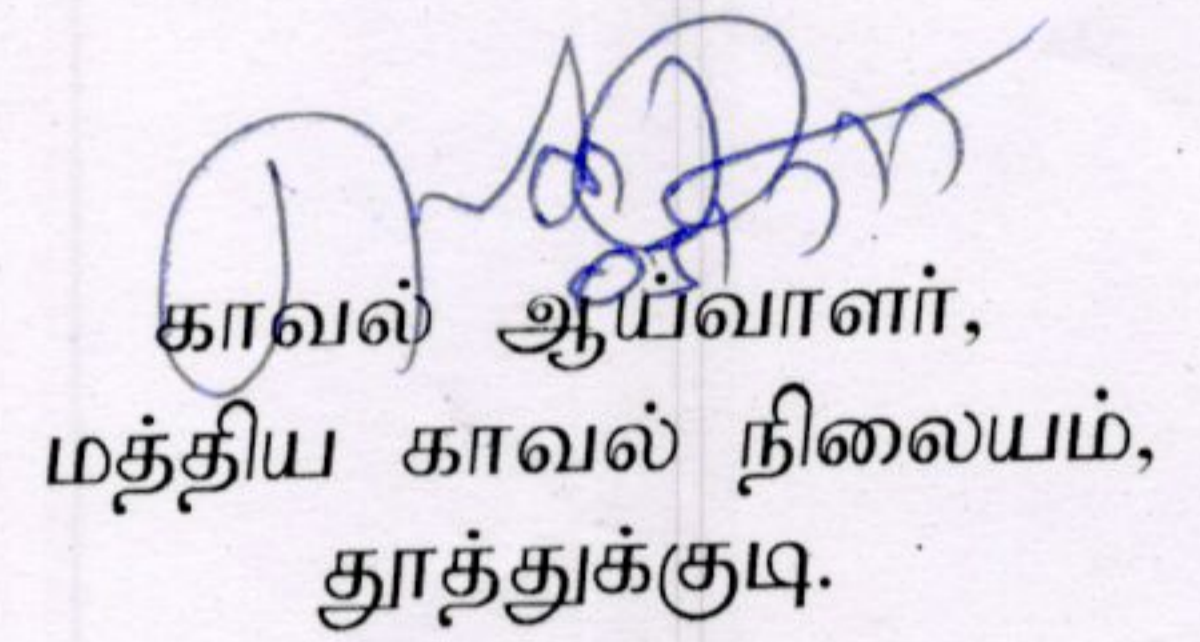 காவல் ஆய்வாளர்,
மத்திய காவல் நிலையம்,
தூத்துக்குடி.